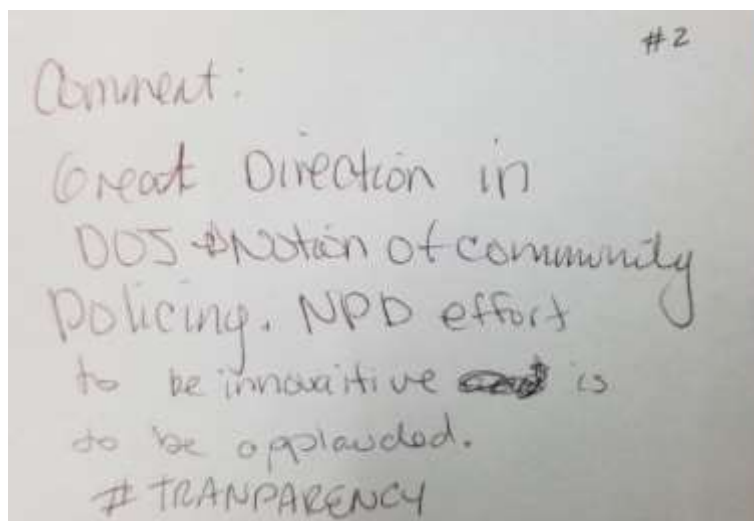 #2
Comment:
Great Direction in
DOJ & Notion of community
Policing. NPD effort
to be innovaitive is
to be applauded.
# TRANPARENCY